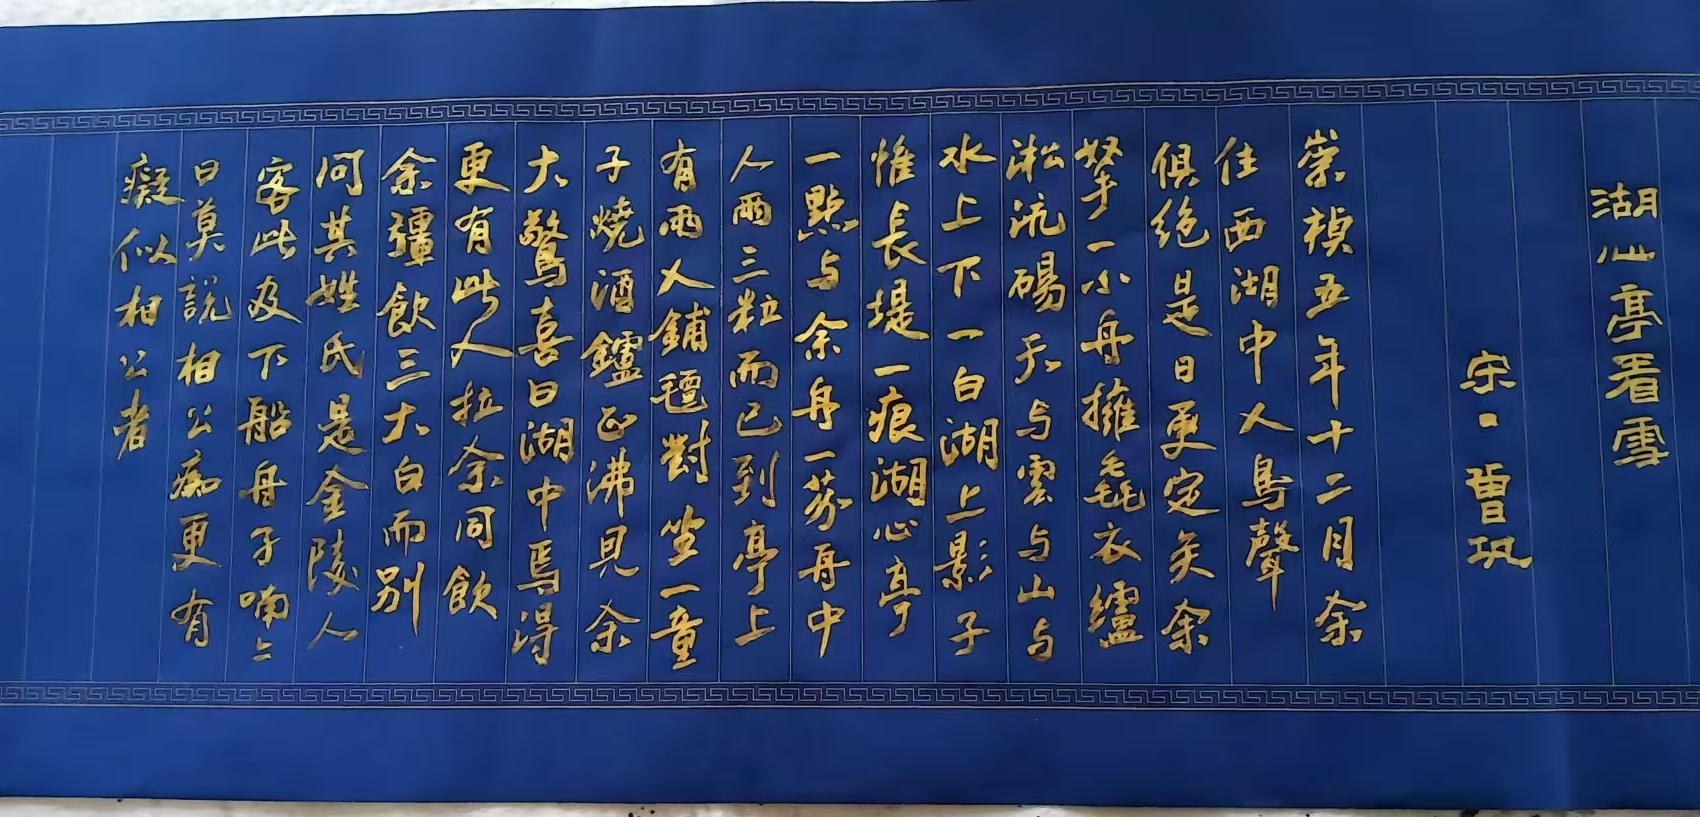 湖心亭看雪
宋·曾巩
崇禎五年十二月余
住西湖中人鳥聲
俱绝是日更定矣余
挐一小舟擁毳衣纑
淞沆碭天与雲与山与
水上下一白湖上影子
惟長堤一痕湖心亭
一點与余舟一芥舟中
人兩三粒而已到亭上
有兩人鋪氊對坐一童
子燒酒鑪正沸見余
大驚喜曰湖中焉得
更有此人拉余同飲
余彊飲三大白而别
问其姓氏是金陵人
客此及下船舟子喃々
曰莫説相公痴更有
癡似相公者